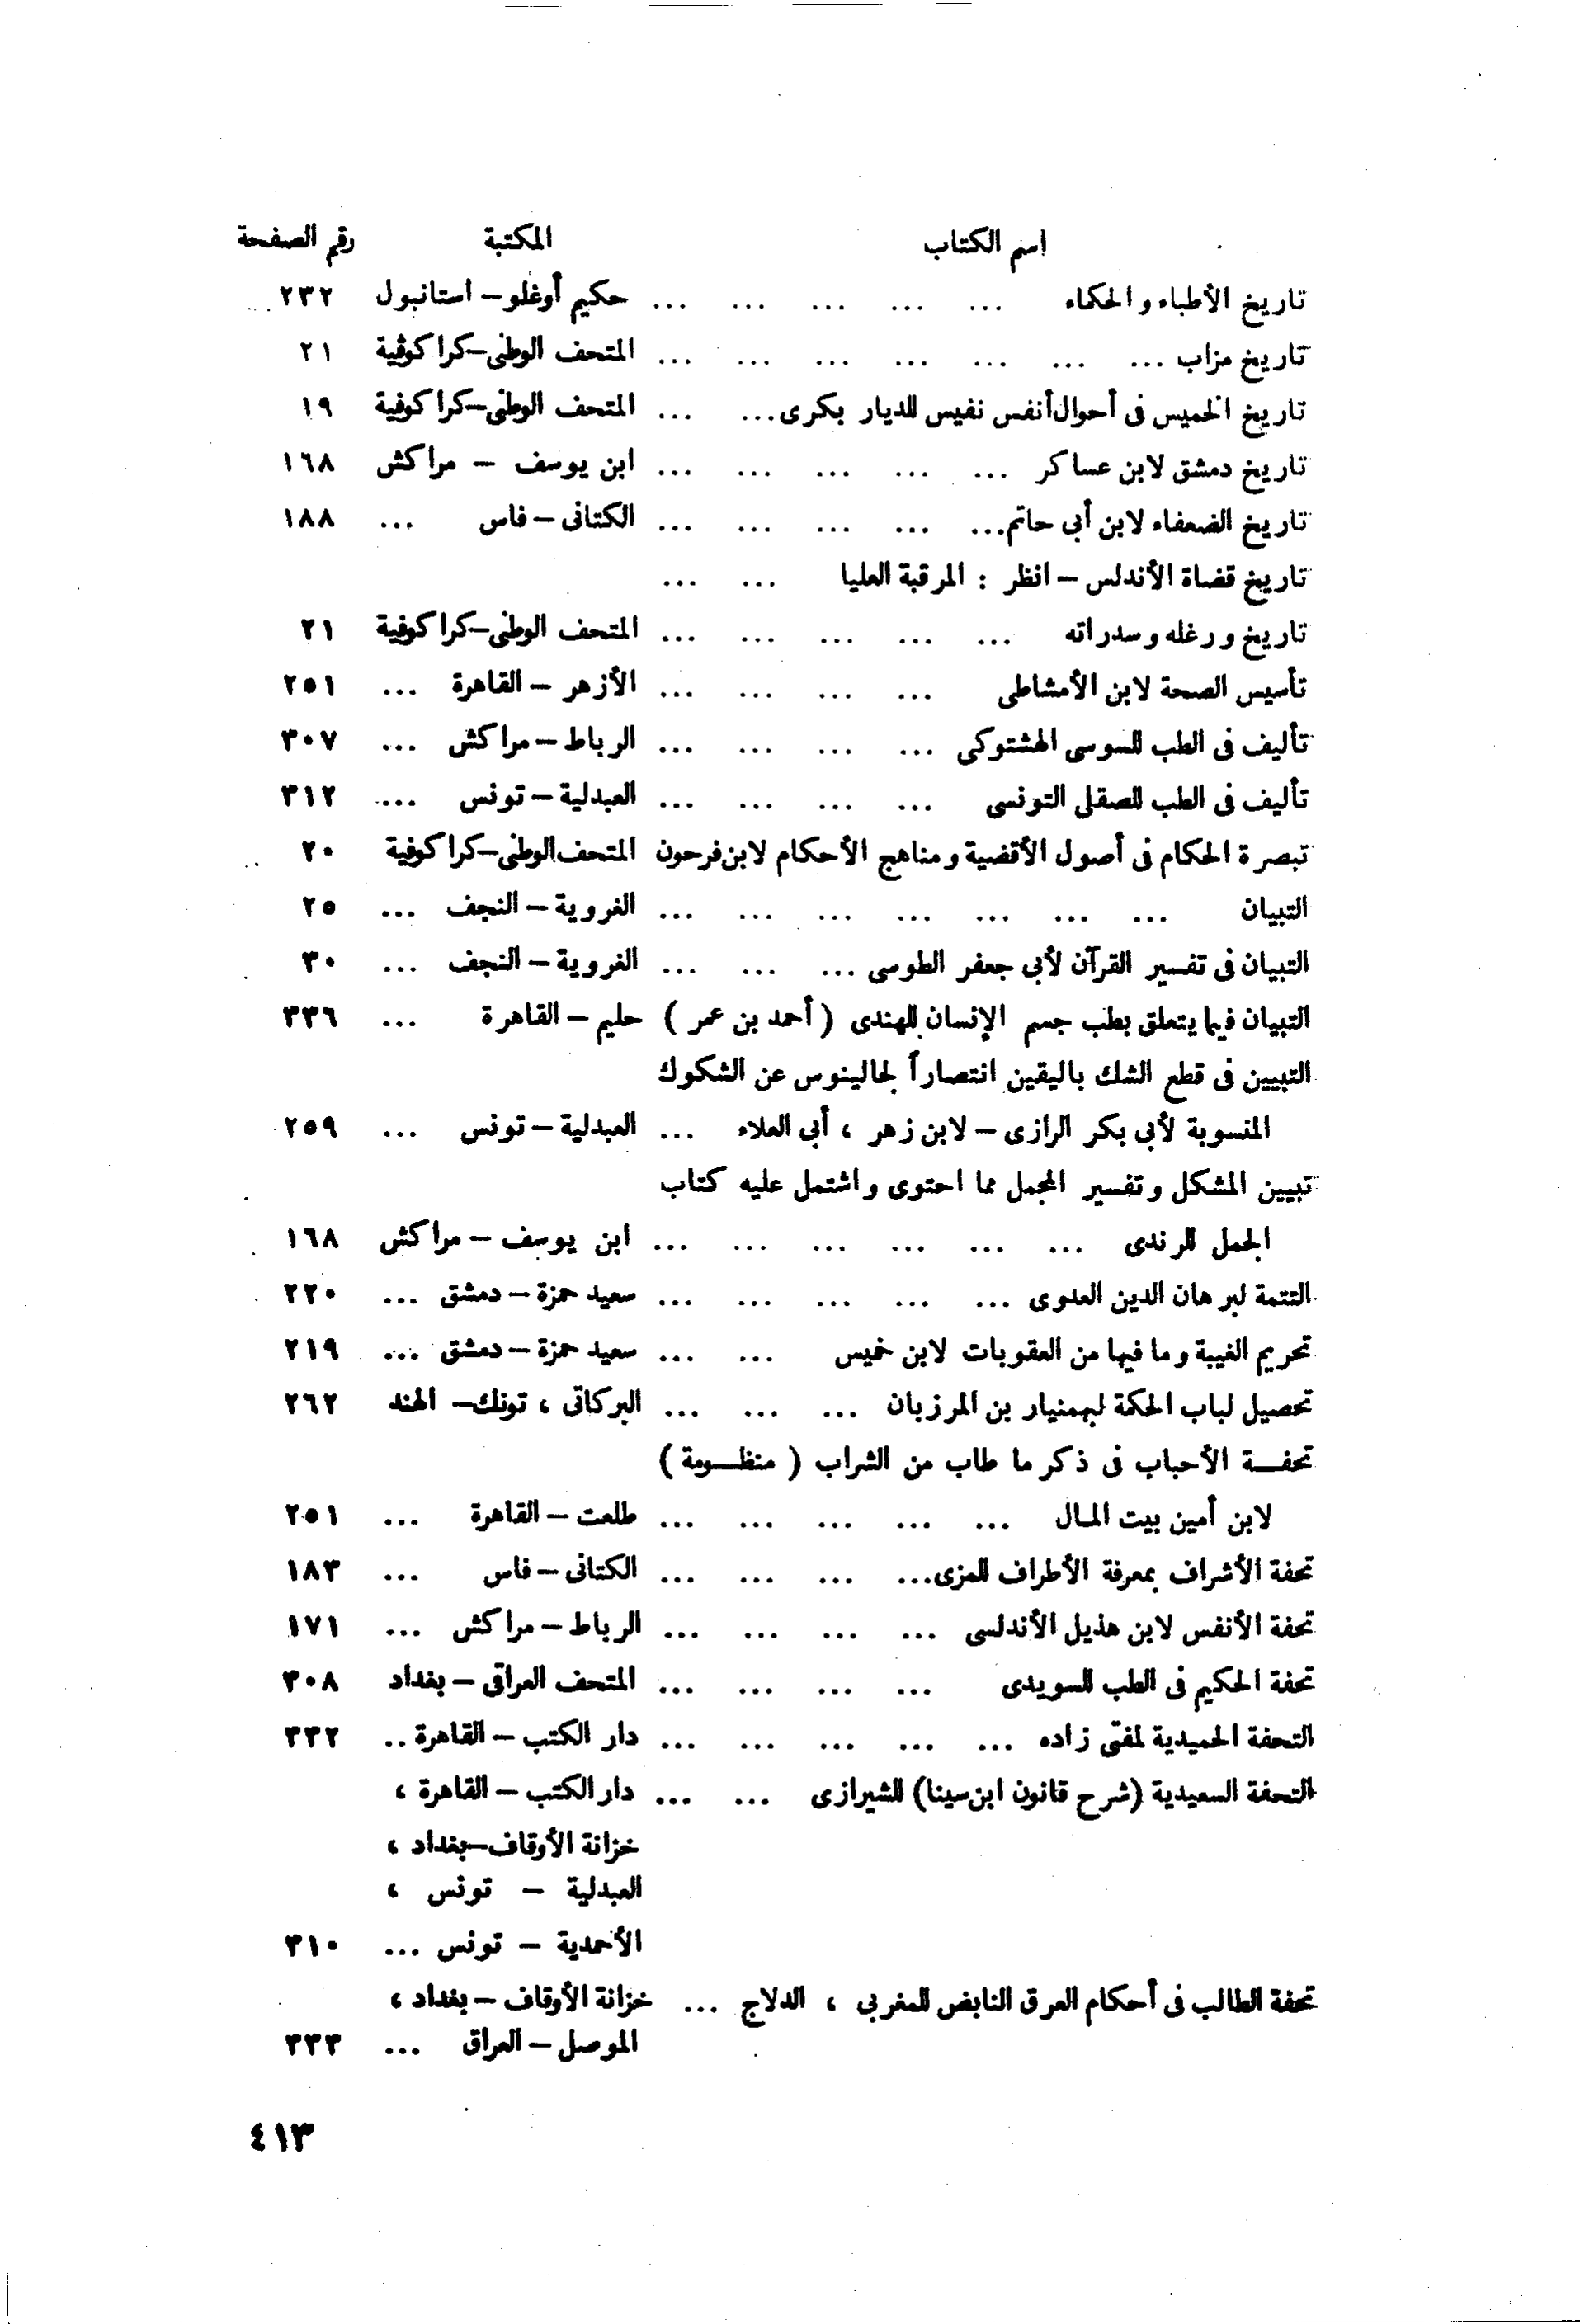 اسم الكتاب المكتبة رقم الصفحة
تاريخ الأطباء والحكماء ... ... ... ... ... حكيم أوغلو – استانبول ٢٣٢
تاريخ مزاب ... ... ... ... ... ... ... المتحف الوطنى – كراكوفية ٢١
تاريخ الخميس فى أحوال أنفس نفيس للديار بكرى ... ... المتحف الوطنى – كراكوفية ١٩
تاريخ دمشق لابن عساكر ... ... ... ... ... ابن يوسف – مراكش ١٦٨
تاريخ الضعفاء لابن أبى حاتم ... ... ... ... ... الكتانى – فاس ... ١٨٨
تاريخ قضاة الأندلس – انظر : المرقبة العليا ... ...
تاريخ ورغله وسدراته ... ... ... ... ... المتحف الوطنى – كراكوفية ٢١
تأسيس الصحة لابن الأمشاطى ... ... ... ... الأزهر – القاهرة ... ٢٥١
تأليف فى الطب للسوسى الهشتوكى ... ... ... ... الرباط – مراكش ... ٣٠٧
تأليف فى الطب للصقلى التونسى ... ... ... ... العبدلية – تونس ... ٣١٢
تبصرة الحكام فى أصول الأقضية ومناهج الأحكام لابن فرحون المتحف الوطنى – كراكوفية ٢٠
التبيان ... ... ... ... ... ... ... الغروية – النجف ... ٢٥
التبيان فى تفسير القرآن لأبى جعفر الطوسى ... ... ... الغروية – النجف ... ٣٠
التبيان فيما يتعلق بطب جسم الإنسان للهندى ( أحمد بن عمر ) حليم – القاهرة ... ٣٣٦
التبيين فى قطع الشك باليقين انتصاراً لجالينوس عن الشكوك
المنسوبة لأبى بكر الرازى – لابن زهر ، أبى العلاء ... العبدلية – تونس ... ٢٥٩
تبيين المشكل وتفسير المجمل مما احتوى واشتمل عليه كتاب
الجمل للرندى ... ... ... ... ... ... ابن يوسف – مراكش ١٦٨
التتمة لبرهان الدين العدوى ... ... ... ... ... سعيد حمزة – دمشق ... ٢٢٠
تحريم الغيبة وما فيها من العقوبات لابن خميس ... ... سعيد حمزة – دمشق ... ٢١٩
تحصيل لباب الحكمة لبهمنيار بن المرزبان ... ... ... البركاتى ، تونك – الهند ٢٦٢
تحفــة الأحباب فى ذكر ما طاب من الشراب ( منظــومة )
لابن أمين بيت المـال ... ... ... ... ... طلعت – القاهرة ... ٢٥١
تحفة الأشراف بمعرفة الأطراف للمزى ... ... ... ... الكتانى – فاس ... ١٨٣
تحفة الأنفس لابن هذيل الأندلسى ... ... ... ... الرباط – مراكش ... ١٧١
تحفة الحكيم فى الطب للسويدى ... ... ... ... المتحف العراقى – بغداد ٣٠٨
التحفة الحميدية لمفتى زاده ... ... ... ... ... دار الكتب – القاهرة .. ٣٣٢
التحفة السعيدية (شرح قانون ابن سينا) للشيرازى ... ... دار الكتب – القاهرة ،
خزانة الأوقاف – بغداد ،
العبدلية – تونس ،
الأحمدية – تونس ... ٣١٠
تحفة الطالب فى أحكام العرق النابض للمغربى ، الدلاج ... خزانة الأوقاف – بغداد ،
الموصل – العراق ... ٣٣٣
٤١٣